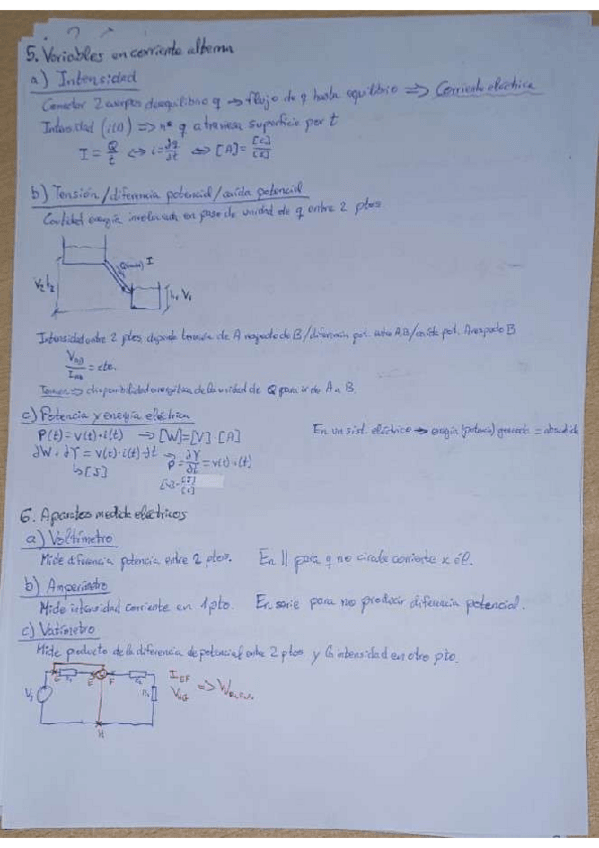 5. Variables en corriente alterna
a) Intensidad
Conectar 2 cuerpos desequilibrio q → flujo de q hasta equilibrio ⇒ Corriente eléctrica
Intensidad (i(t)) ⇒ nº q atraviesa superficie por t
I = Q/t ⇔ i = ∂q/∂t ⇔ [A] = [C]/[s]
b) Tensión/diferencia potencial/caída potencial
Cantidad energía involucrada en paso de unidad de q entre 2 ptos
I
V₂ h₂
h₁ V₁
Intensidad entre 2 ptos, depende tensión de A respecto de B/diferencia pot. entre AB/caída pot. A respecto B
V_AB/I_AB = cte.
Tensión ⇒ disponibilidad energética de la unidad de Q para ir de A a B.
c) Potencia y energía eléctrica
P(t) = v(t)·i(t) → [W]=[V]·[A]
En un sist. eléctrico → energía (potencia) generada = absorbida
∂W = ∂Y = v(t)·i(t)·∂t → P = ∂Y/∂t = v(t)·i(t)
↳ [J]
[W]=[J]/[s]
6. Aparatos medida eléctricos
a) Voltímetro
Mide diferencia potencia entre 2 ptos. En || para q no circule corriente x él.
b) Amperímetro
Mide intensidad corriente en 1 pto. En serie para no producir diferencia potencial.
c) Vatímetro
Mide producto de la diferencia de potencial entre 2 ptos y la intensidad en otro pto.
G E F I_EF
V₁ ⇒ W
H